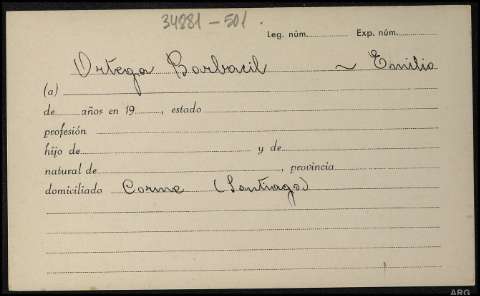 34881 - 501.
Leg. núm. Exp. núm.
Ortega Barbacil ~ Emilio
(a)
de años en 19, estado
profesión
hijo de y de
natural de, provincia
domiciliado Corme (Santiago)
ARG